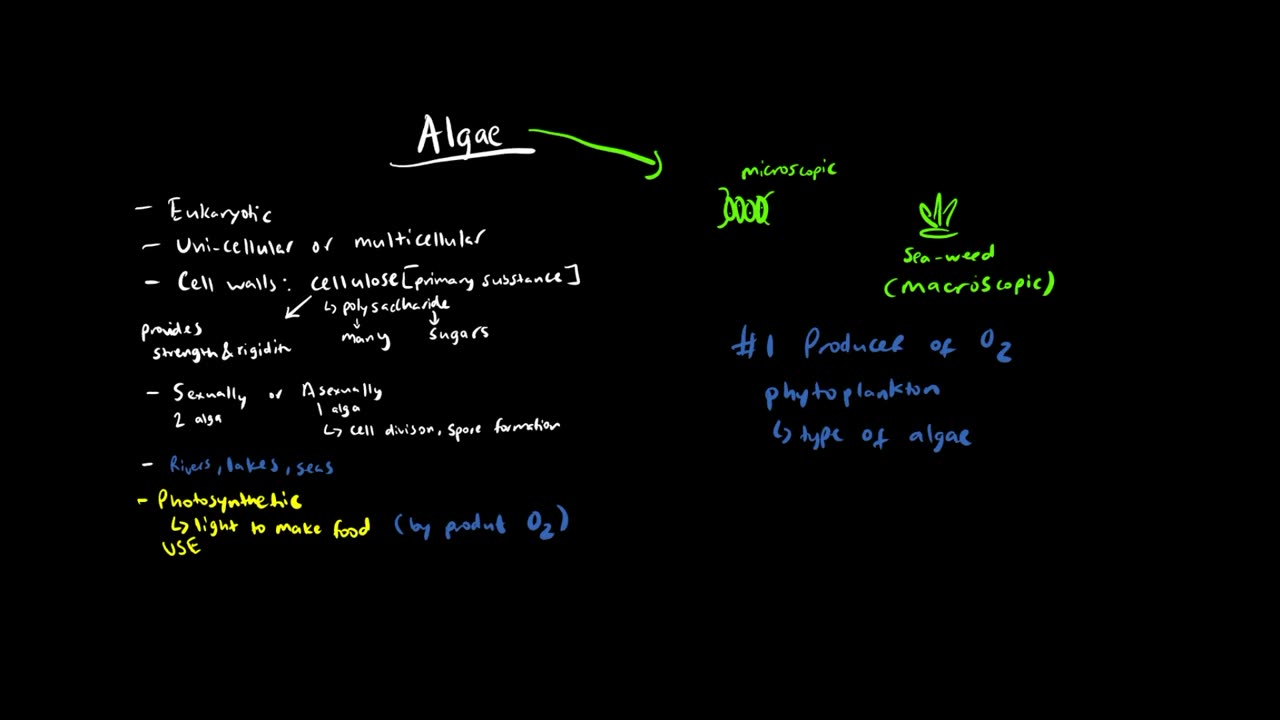 Algae
- Eukaryotic
- Uni-cellular or multicellular
- Cell walls: cellulose [primary substance]
↳ polysaccharide
many sugars
provides
strength & rigidity
- Sexually or Asexually
2 alga 1 alga
↳ cell divison, spore formation
- Rivers, lakes, seas
- Photosynthetic
↳ light to make food (by produt O2)
USE
microscopic
sea-weed
(macroscopic)
#1 Producer of O2
phytoplankton
↳ type of algae